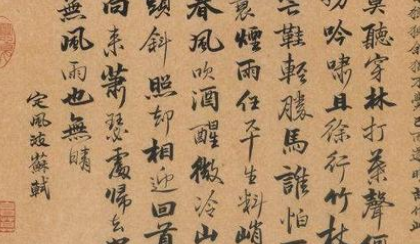 莫聽穿林打葉聲何
妨吟嘯且徐行竹杖
芒鞋輕勝馬誰怕一
蓑煙雨任平生料峭
春風吹酒醒微冷山
頭斜照却相迎回首
向来蕭瑟處歸去
無風雨也無晴
定風波蘇軾